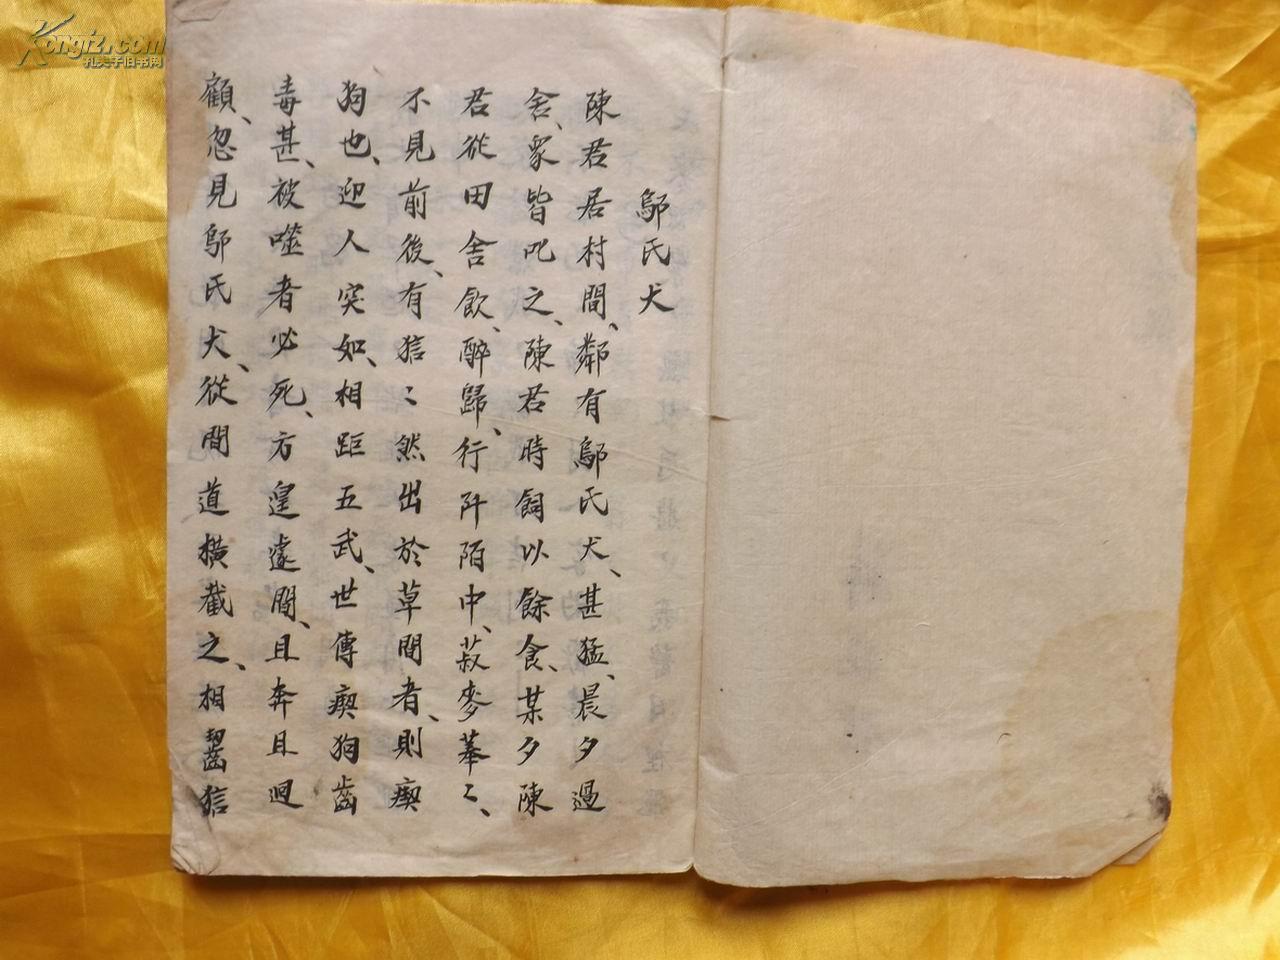 鄔氏犬
陳君居村間、鄰有鄔氏犬、甚猛、晨夕過
舍、家皆叱之、陳君時飼以餘食、某夕陳
君從田舍飲、醉歸、行阡陌中、菽麥菶〻、
不見前後、有狺〻然出於草間者、則瘈
狗也、迎人突如、相距五武、世傳瘈狗齒
毒甚、被噬者必死、方遑遽間、且奔且迴
顧、忽見鄔氏犬、從間道橫截之、相齧狺
Kongfz.com
孔夫子旧书网